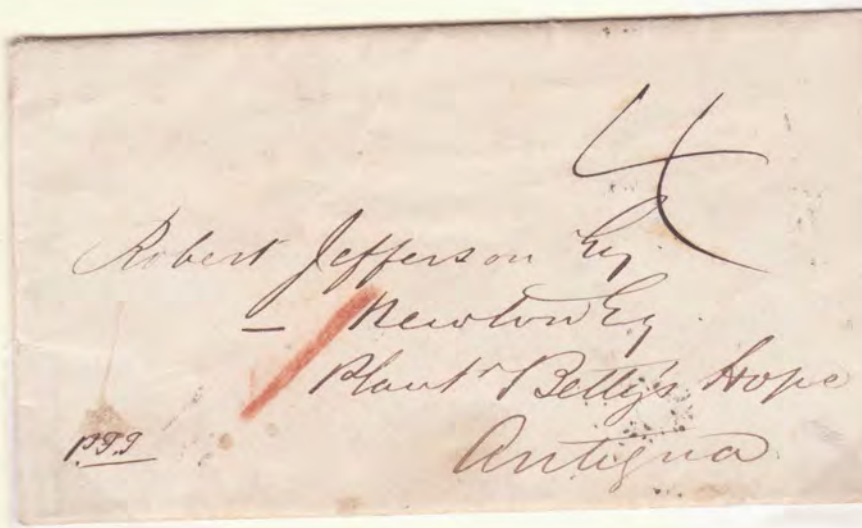 4
Robert Jefferson Esq.
— Newton Esq.
Plantn Betty's Hope
Antigua